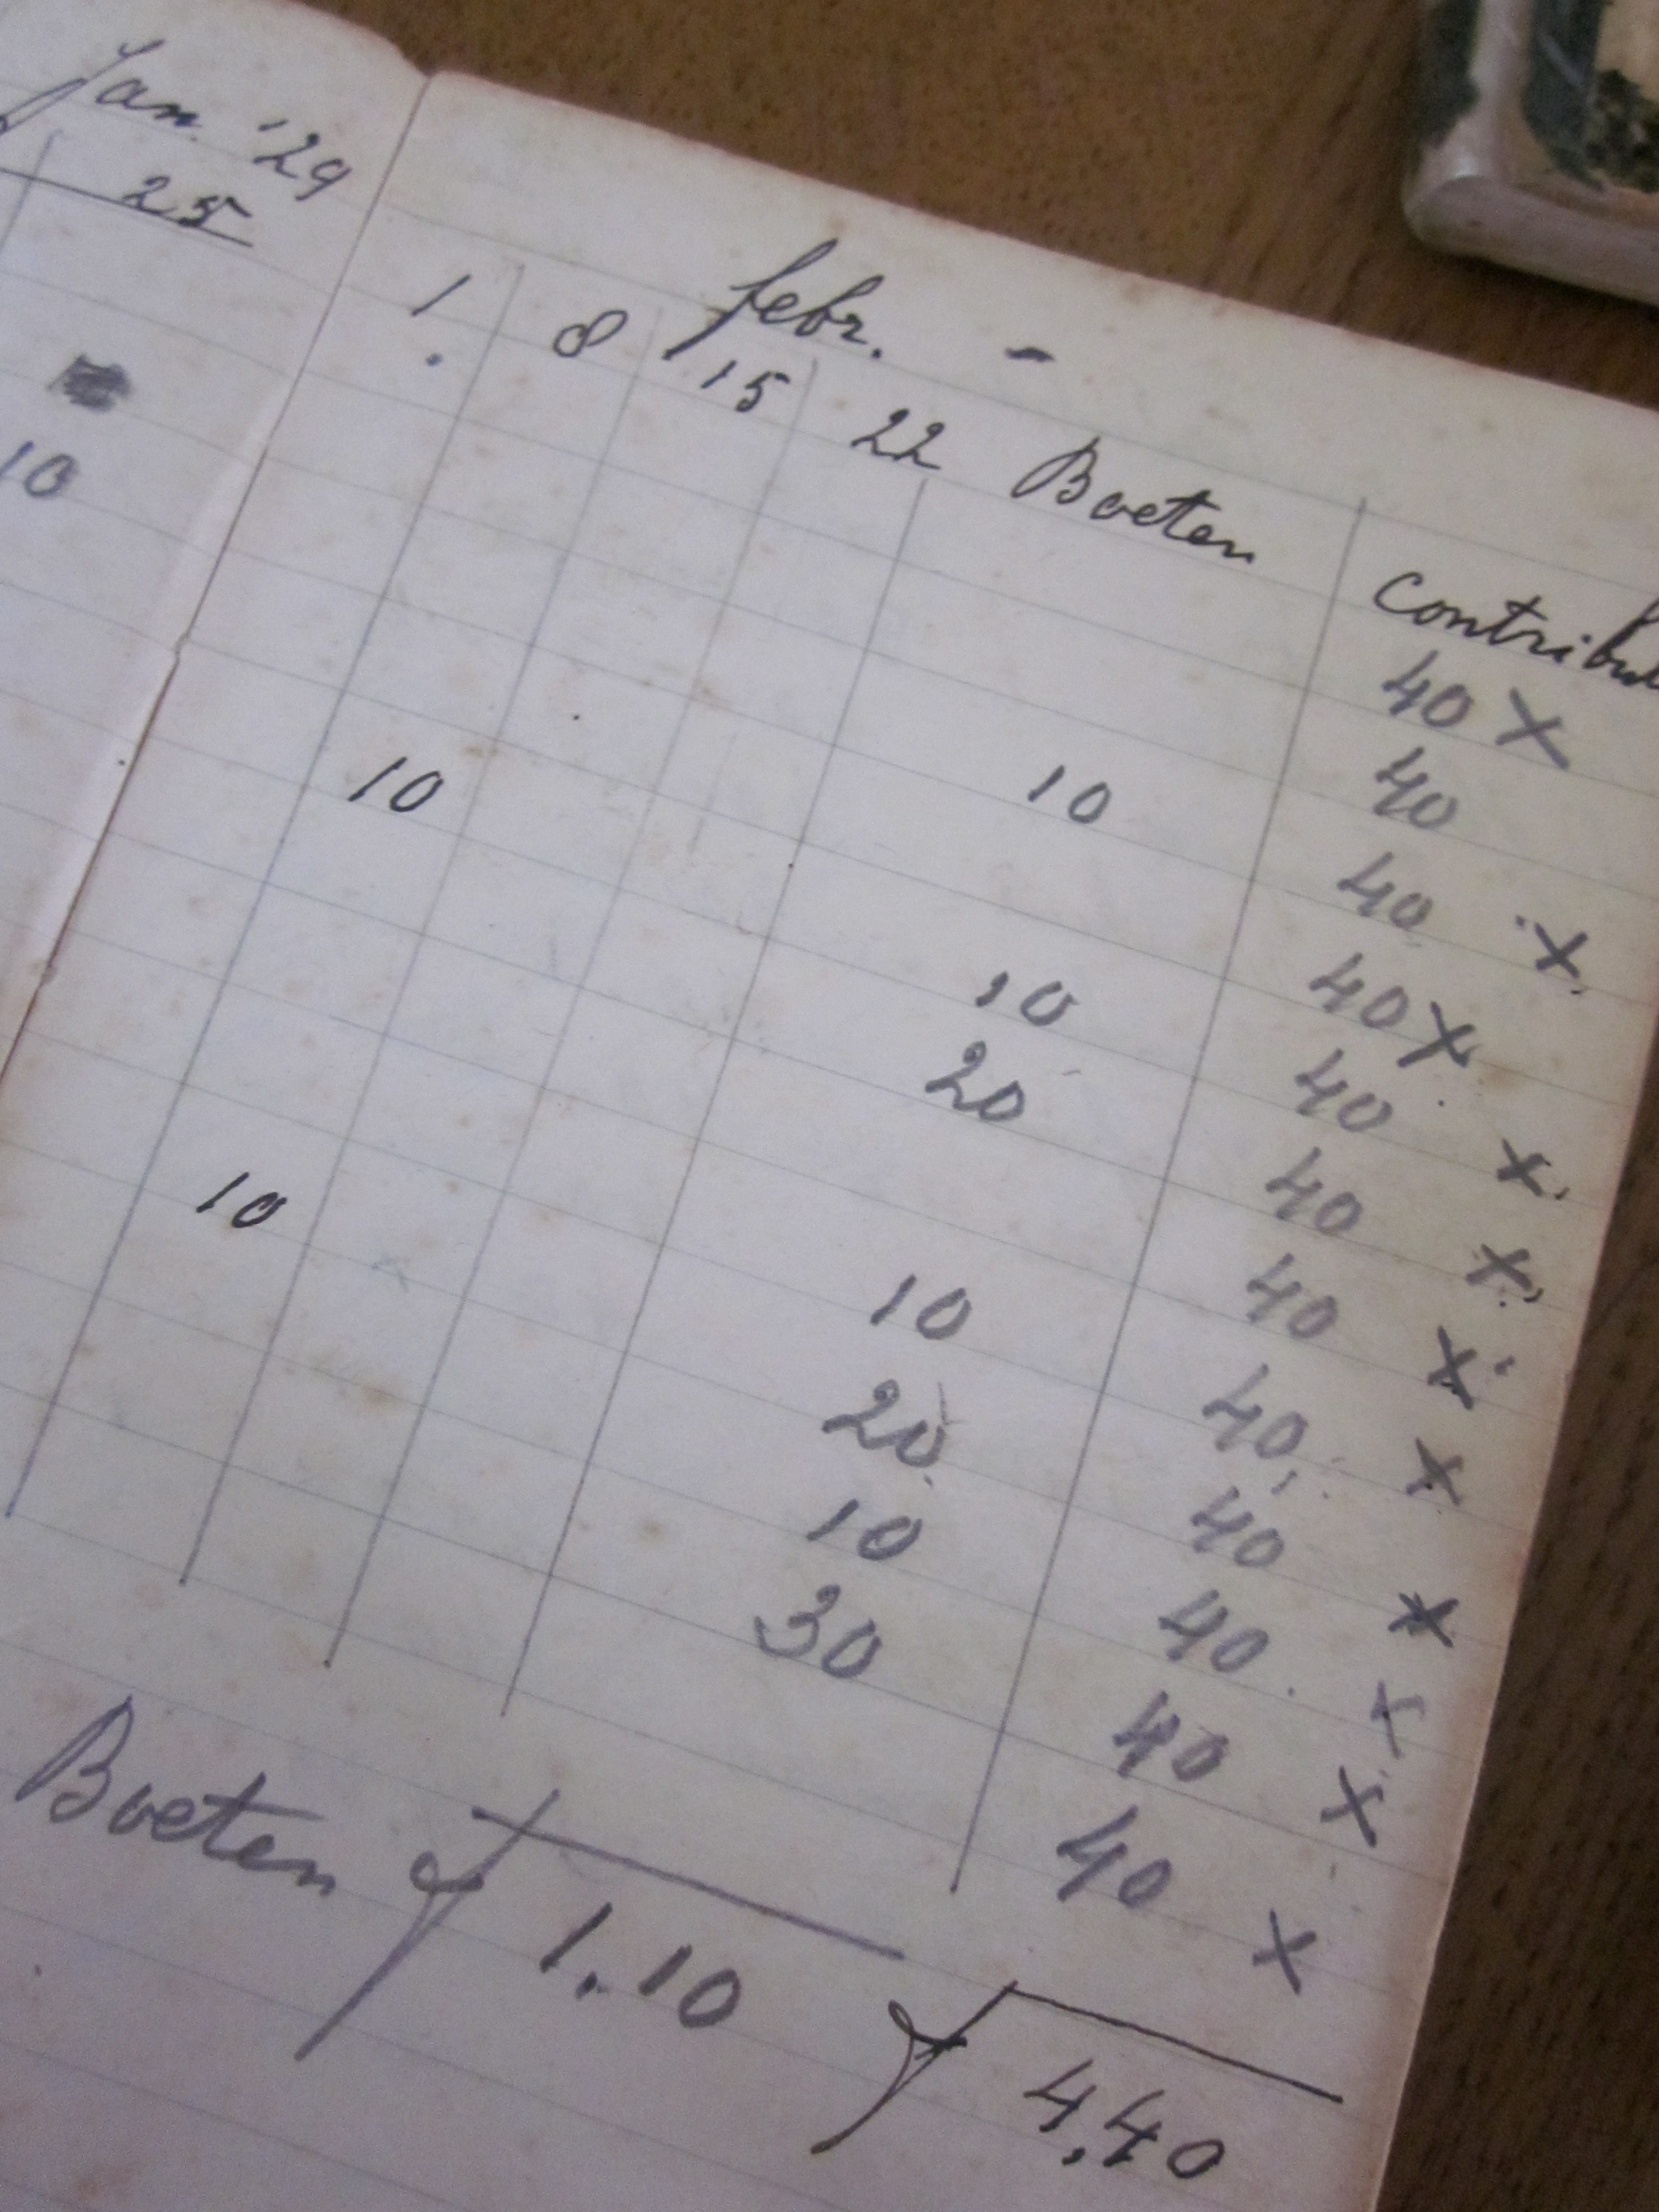 Jan. '29
25
10
febr. -
1. 8 15 22 Boeten contribu
40 X
10 10 40
40 X
10 40 X
20 40
10 40 X
40 X
10 40 X
20 40 X
10 40 X
30 40 X
40 X
X
Boeten ƒ 1.10
ƒ 4,40